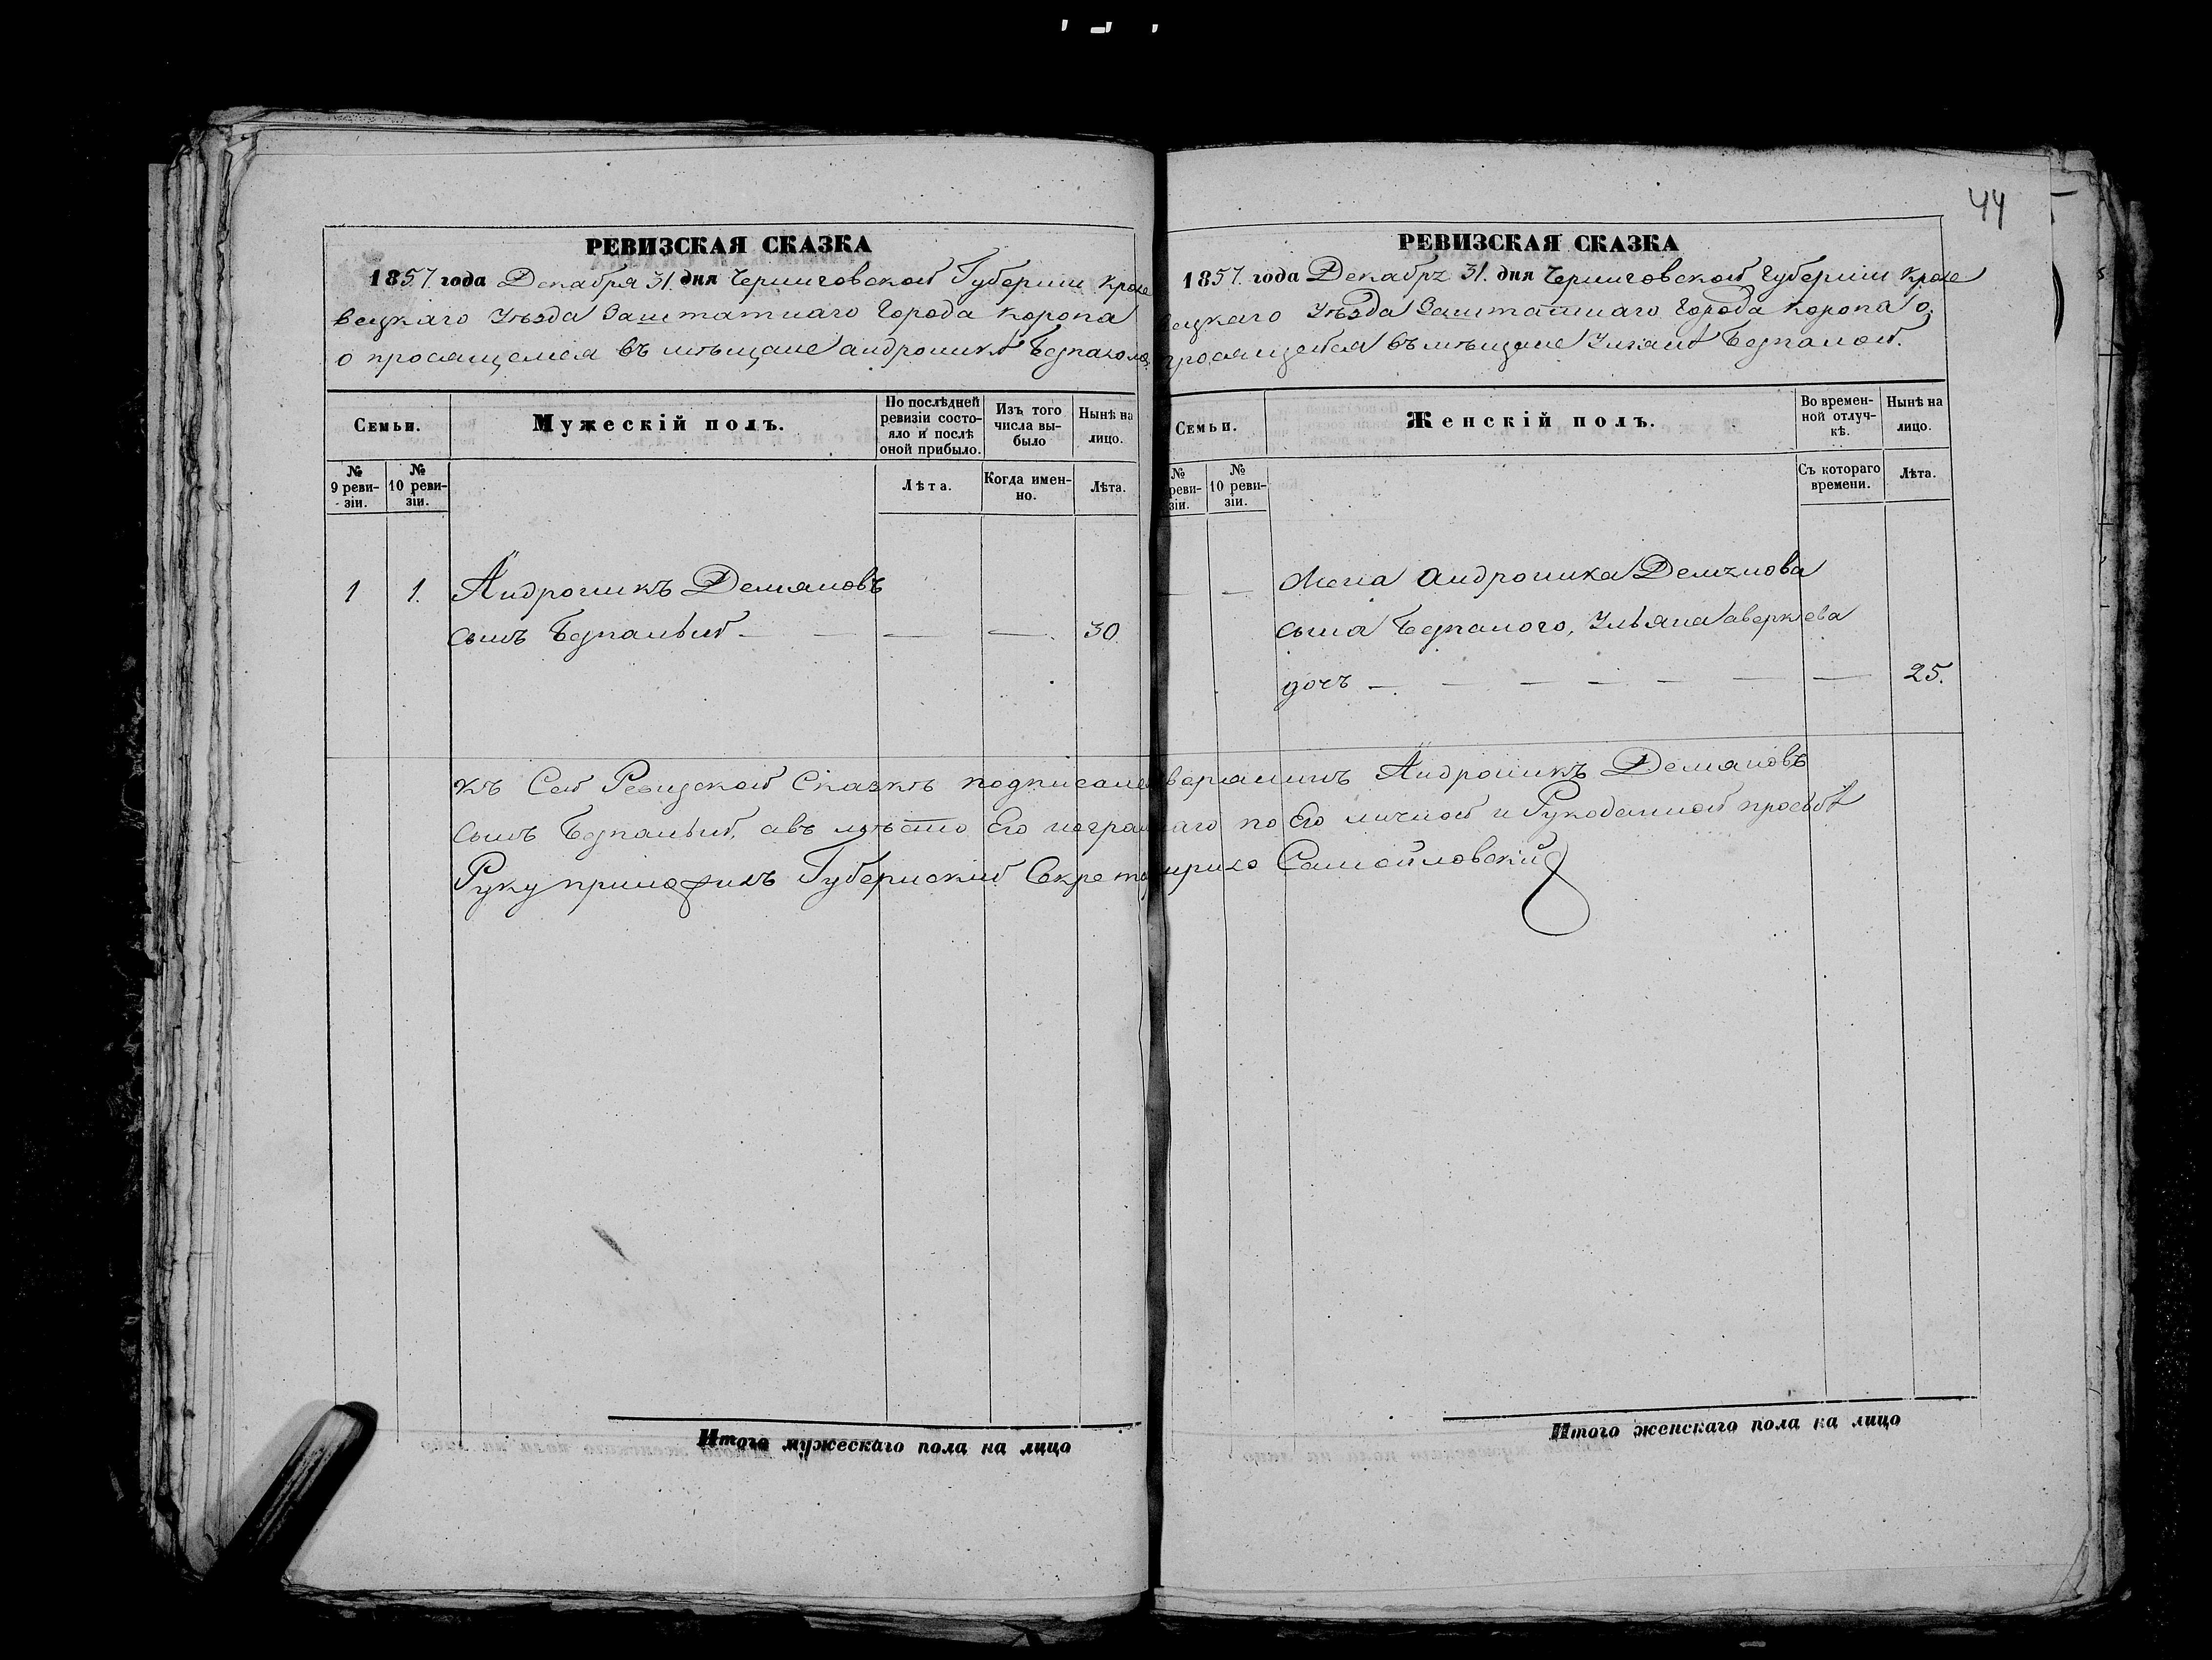 44
РЕВИЗСКАЯ СКАЗКА
1857 года Декабря 31. дня Черниговской Губерніи Кроле
вецкаго Уѣзда Заштатнаго Города Коропа
о просящемся въ мѣщане Андроникѣ
Семьи.
Мужескій полъ.
По послѣдней ревизіи состо-
яло и послѣ
оной прибыло.
Изъ того
числа вы-
было
Нынѣ на
лицо.
№
9 реви-
зіи.
№
10 реви-
зіи.
Лѣта.
Когда имен-
но.
Лѣта.
1 1. Андроникъ Демяновъ
сынъ Безпалый — — — 30.
РЕВИЗСКАЯ СКАЗКА
1857. года Декабря 31. дня Черниговской Губерніи Кроле
вецкаго Уѣзда Заштатнаго Города Коропа о
просящейся въ мѣщане Безпалой.
Семьи.
Женскій полъ.
Во времен-
ной отлуч-
кѣ.
Нынѣ на
лицо.
№
реви-
зіи.
№
10 реви-
зіи.
Съ котораго
времени.
Лѣта.
— — Жена Андроника Демянова
сына Безпалого, Ульяна Аверкіева
дочь — — — — — — — 25.
Къ Сей Ревизской Сказкѣ подписале Андроникъ Демяновъ
сынъ Безпалый, а въ мѣсто Его неграмнаго по Его личной и Рукоданной прозбѣ
Руку приложилъ Губернскій Секретарь Самойловскій
Итого мужескаго пола на лицо
Итого женскаго пола на лицо